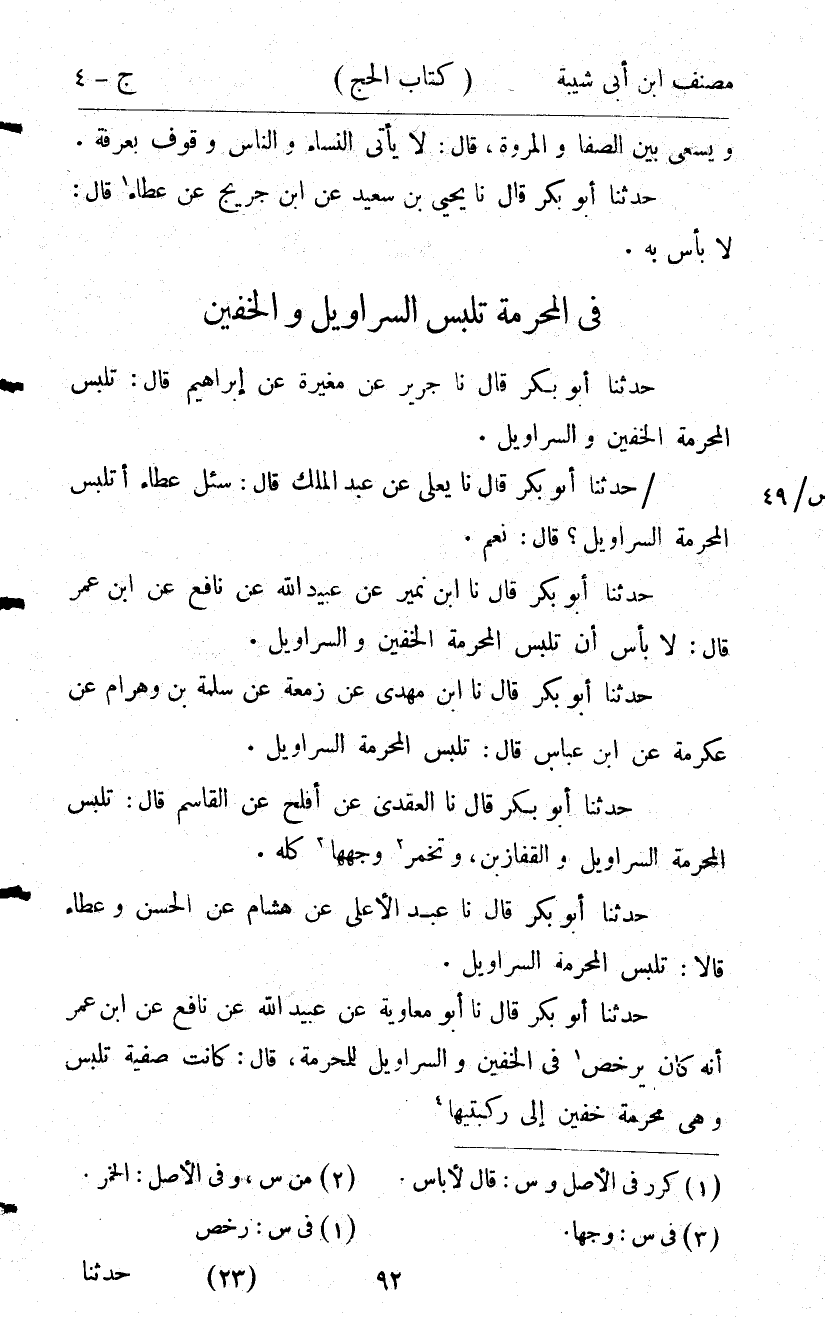 مصنف ابن أبى شيبة ( كتاب الحج ) ج - ٤
و يسعى بين الصفا و المروة ، قال : لا يأتى النساء و الناس و قوف بعرفة .
حدثنا أبو بكر قال نا يحيى بن سعيد عن ابن جريج عن عطاء١ قال :
لا بأس به .
فى المحرمة تلبس السراويل و الخفين
حدثنا أبو بكر قال نا جرير عن مغيرة عن إبراهيم قال : تلبس
المحرمة الخفين و السراويل .
/ حدثنا أبو بكر قال نا يعلى عن عبد الملك قال : سئل عطاء أتلبس س/ ٤٩
المحرمة السراويل ؟ قال : نعم .
حدثنا أبو بكر قال نا ابن نمير عن عبيد الله عن نافع عن ابن عمر
قال : لا بأس أن تلبس المحرمة الخفين و السراويل .
حدثنا أبو بكر قال نا ابن مهدى عن زمعة عن سلمة بن وهرام عن
عكرمة عن ابن عباس قال : تلبس المحرمة السراويل .
حدثنا أبو بكر قال نا العقدى عن أفلح عن القاسم قال : تلبس
المحرمة السراويل و القفازين ، و تخمر٢ وجهها٣ كله .
حدثنا أبو بكر قال نا عبد الأعلى عن هشام عن الحسن و عطاء
قالا : تلبس المحرمة السراويل .
حدثنا أبو بكر قال نا أبو معاوية عن عبيد الله عن نافع عن ابن عمر
أنه كان يرخص١ فى الخفين و السراويل للمحرمة ، قال : كانت صفية تلبس
و هى محرمة خفين إلى ركبتيها٤
(١) كرر فى الأصل و س : قال لأباس . (٢) من س ، و فى الأصل : الخمر .
(٣) فى س : وجها . (١) فى س : رخص
٩٢ (٢٣) حدثنا